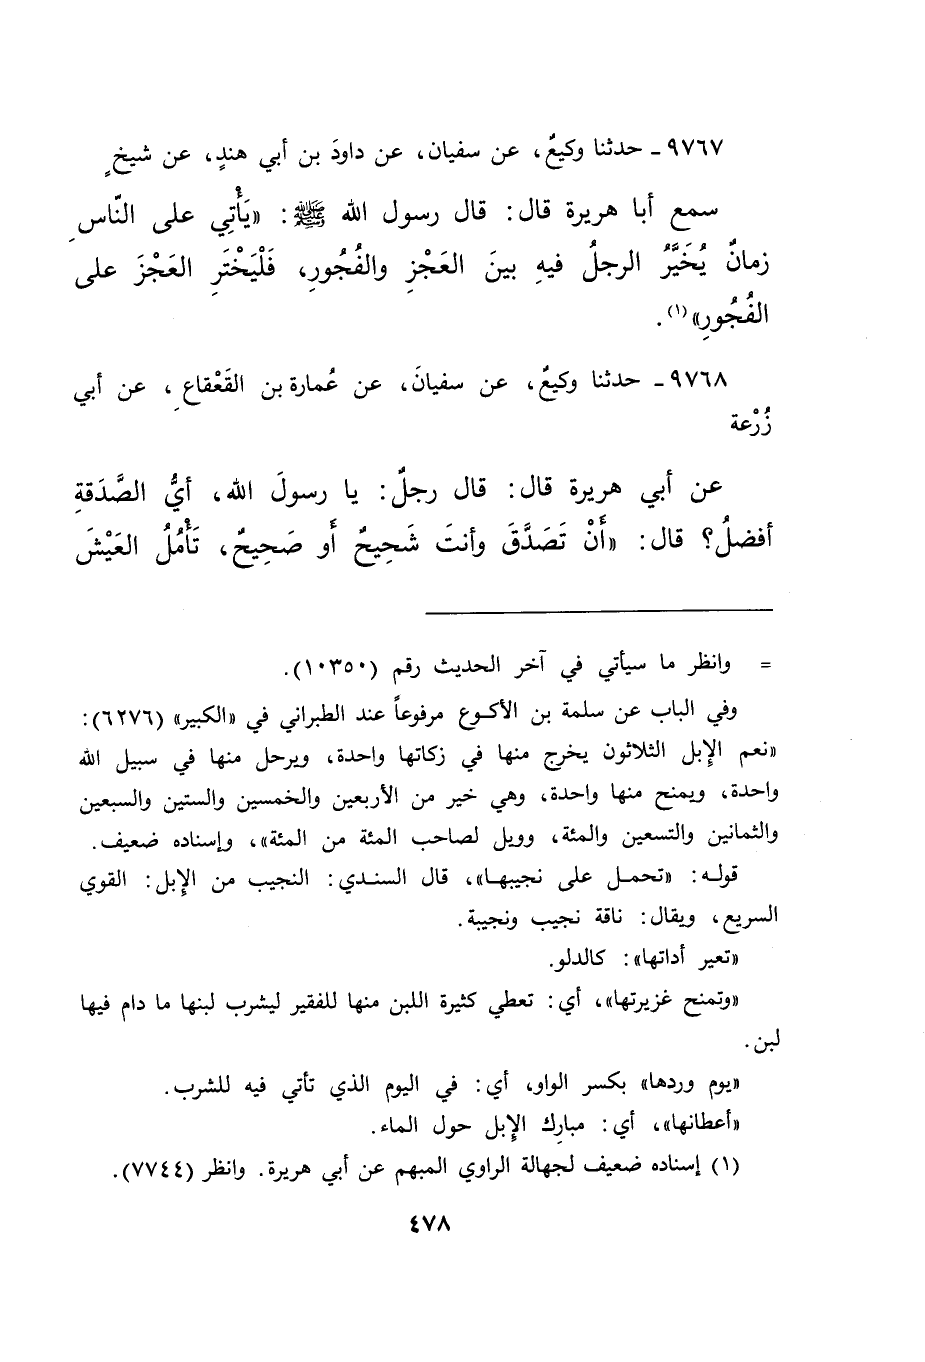 ٩٧٦٧ ـ حدثنا وكيعٌ، عن سفيان، عن داودَ بن أبي هندٍ، عن شيخٍ
سمع أبا هريرة قال: قال رسول الله ﷺ: «يَأْتِي على النَّاسِ
زمانٌ يُخَيَّرُ الرجلُ فيهِ بينَ العَجْزِ والفُجُورِ، فَلْيَخْتَرِ العَجْزَ على
الفُجُورِ»(١).
٩٧٦٨ ـ حدثنا وكيعٌ، عن سفيانَ، عن عُمارة بن القَعْقاعِ، عن أبي
زُرْعة
عن أبي هريرة قال: قال رجلٌ: يا رسولَ الله، أيُّ الصَّدَقةِ
أفضلُ؟ قال: «أَنْ تَصَدَّقَ وأنتَ شَحِيحٌ أَو صَحِيحٌ، تَأْمُلُ العَيْشَ
= وانظر ما سيأتي في آخر الحديث رقم (١٠٣٥٠).
وفي الباب عن سلمة بن الأكوع مرفوعاً عند الطبراني في «الكبير» (٦٢٧٦):
«نعم الإبل الثلاثون يخرج منها في زكاتها واحدة، ويرحل منها في سبيل الله
واحدة، ويمنح منها واحدة، وهي خير من الأربعين والخمسين والستين والسبعين
والثمانين والتسعين والمئة، وويل لصاحب المئة من المئة»، وإسناده ضعيف.
قوله: «تحمل على نجيبها»، قال السندي: النجيب من الإبل: القوي
السريع، ويقال: ناقة نجيب ونجيبة.
«تعير أداتها»: كالدلو.
«وتمنح غزيرتها»، أي: تعطي كثيرة اللبن منها للفقير ليشرب لبنها ما دام فيها
لبن.
«يوم وردها» بكسر الواو، أي: في اليوم الذي تأتي فيه للشرب.
«أعطانها»، أي: مبارِك الإبل حول الماء.
(١) إسناده ضعيف لجهالة الراوي المبهم عن أبي هريرة. وانظر (٧٧٤٤).
٤٧٨